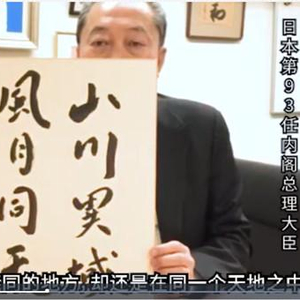 日本第93任内阁总理大臣
山川異域
風月同天
同的地方,却还是在同一个天地之中